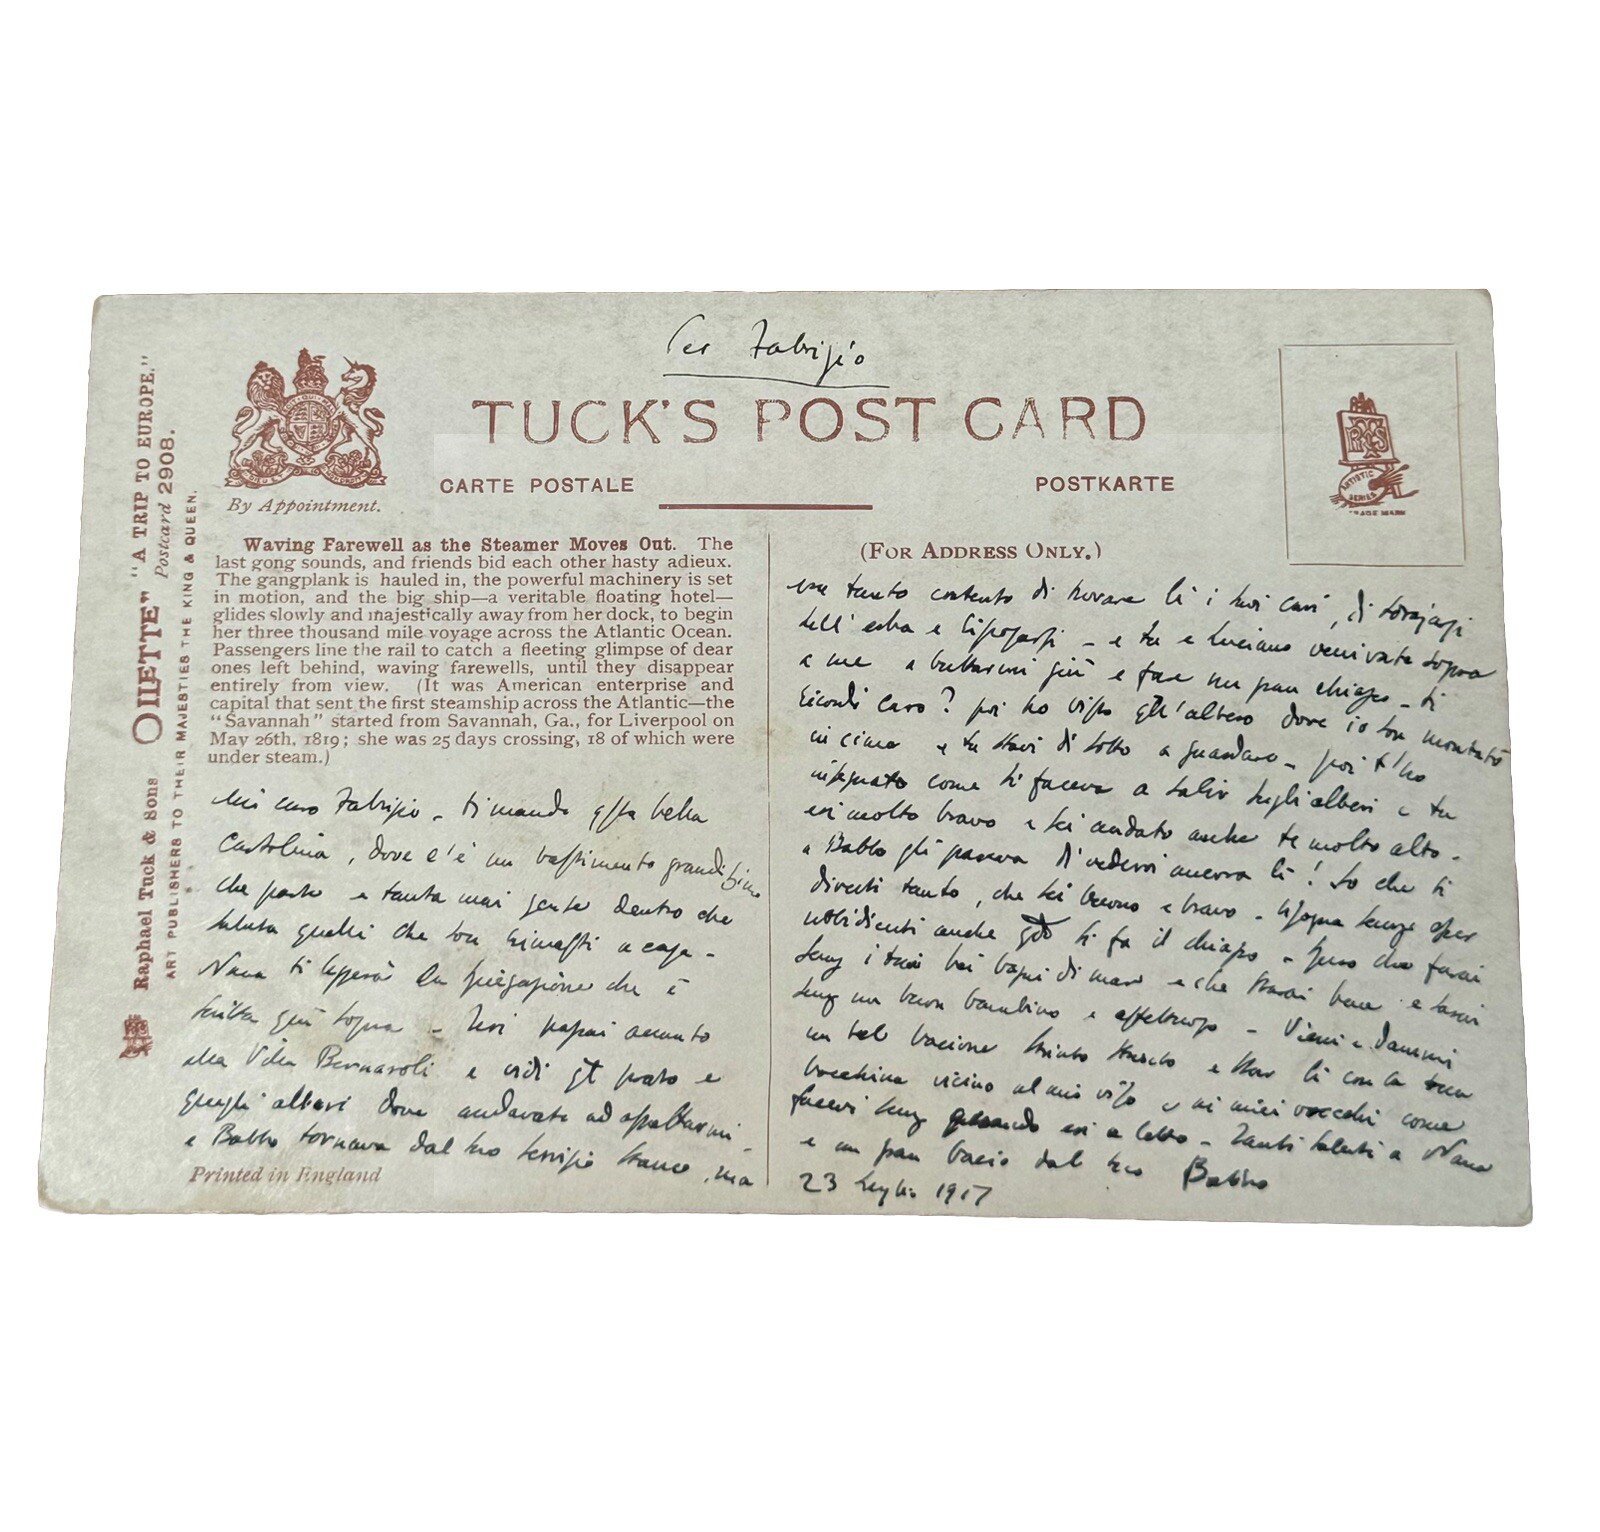 Per Fabrizio
TUCK'S POST CARD
CARTE POSTALE
POSTKARTE
By Appointment.
(FOR ADDRESS ONLY.)
RTS
ARTISTIC SERIES
TRADE MARK
Raphael Tuck & Sons "OILETTE" "A TRIP TO EUROPE."
Postcard 2908.
ART PUBLISHERS TO THEIR MAJESTIES THE KING & QUEEN.
Waving Farewell as the Steamer Moves Out. The
last gong sounds, and friends bid each other hasty adieux.
The gangplank is hauled in, the powerful machinery is set
in motion, and the big ship—a veritable floating hotel—
glides slowly and majestically away from her dock, to begin
her three thousand mile voyage across the Atlantic Ocean.
Passengers line the rail to catch a fleeting glimpse of dear
ones left behind, waving farewells, until they disappear
entirely from view. (It was American enterprise and
capital that sent the first steamship across the Atlantic—the
"Savannah" started from Savannah, Ga., for Liverpool on
May 26th, 1819; she was 25 days crossing, 18 of which were
under steam.)
Mio caro Fabrizio - ti mando qsta bella
Cartolina, dove c'è un bastimento grandissimo
che parte e tanta mai gente dentro che
saluta quelli che son rimasti a casa -
Nana ti leggerà la spiegazione che è
scritta giù sopra - Ieri passai accanto
alla Villa Bernaroli e vidi qt prato e
quegli alberi dove andavate ad aspettarmi -
e Babbo tornava dal suo servizio stanco, ma
Printed in England
era tanto contento di trovare lì i suoi cari, di sdrajarsi
sull'erba e riposarsi - e tu e Luciano venivate sopra
a me a buttarmi giù e fare un gran chiasso - ti
ricordi caro? poi ho visto qll'albero dove io son montato
in cima e tu stavi di sotto a guardare - poi t'ho
insegnato come si faceva a salir sugli alberi e tu
eri molto bravo e sei andato anche te molto alto -
a Babbo gli pareva di vedervi ancora lì! So che ti
diverti tanto, che sei buono e bravo - bisogna senze esser
ubbidienti anche qdo si fa il chiasso - spero che farai
semp i tuoi bei bagni di mare e che starai bene e sarai
semp un buon bambino e affettuoso - Vieni e dammi
un bel bacione stretto stretto e star lì con la tua
bocchina vicino al mio viso e ai miei orecchi come
facevi semp quando eri a letto - Tanti saluti a Nana
e un gran bacio dal tuo Babbo
23 Luglio 1917